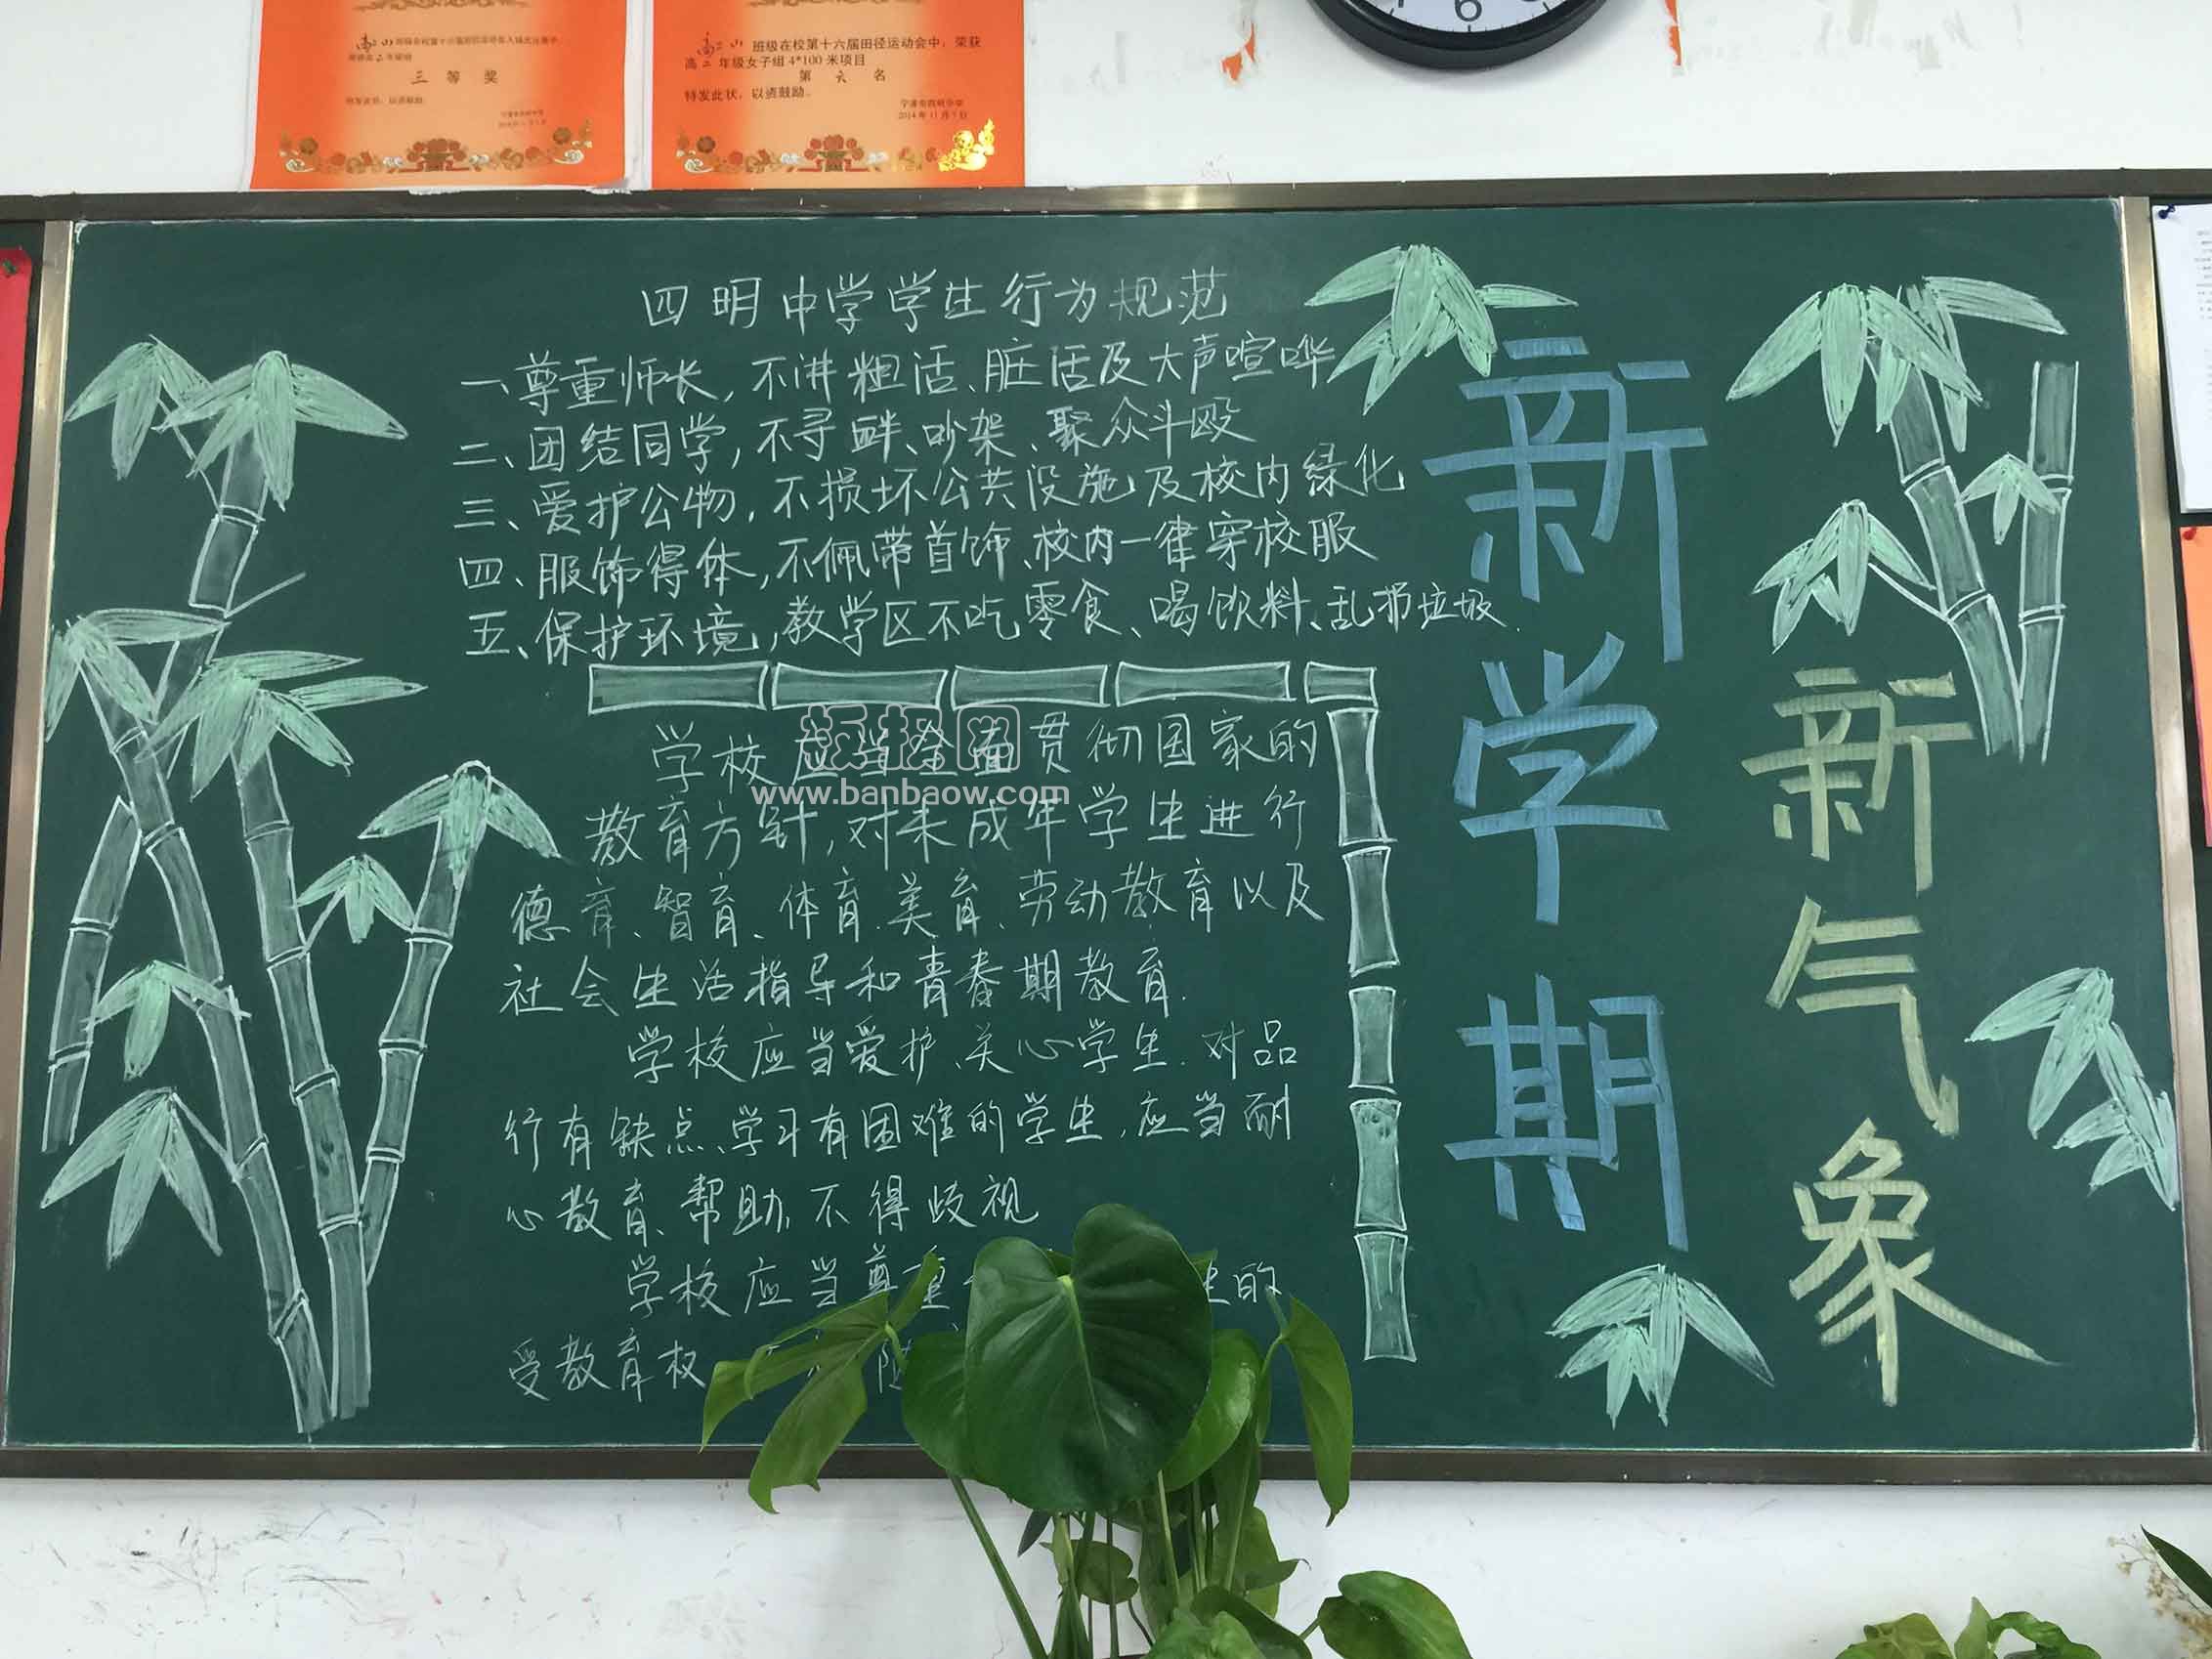 班级在校第十六届田径运动会中，荣获
高二年级女子组4*100米项目
第 六 名
特发此状，以资鼓励。
2014年11月7日
三 等 奖
特发此状，以资鼓励
6
四明中学学生行为规范
一、尊重师长，不讲粗话、脏话及大声喧哗
二、团结同学，不寻衅、吵架、聚众斗殴
三、爱护公物，不损坏公共设施及校内绿化
四、服饰得体，不佩带首饰、校内一律穿校服
五、保护环境，教学区不吃零食、喝饮料、乱扔垃圾.
学校应当全面贯彻国家的
教育方针，对未成年学生进行
德育、智育、体育、美育、劳动教育以及
社会生活指导和青春期教育.
学校应当爱护、关心学生.对品
行有缺点、学习有困难的学生，应当耐
心教育、帮助,不得歧视
学校应当尊重
生的
受教育权
新学期
新气象
板报网
www.banbaow.com